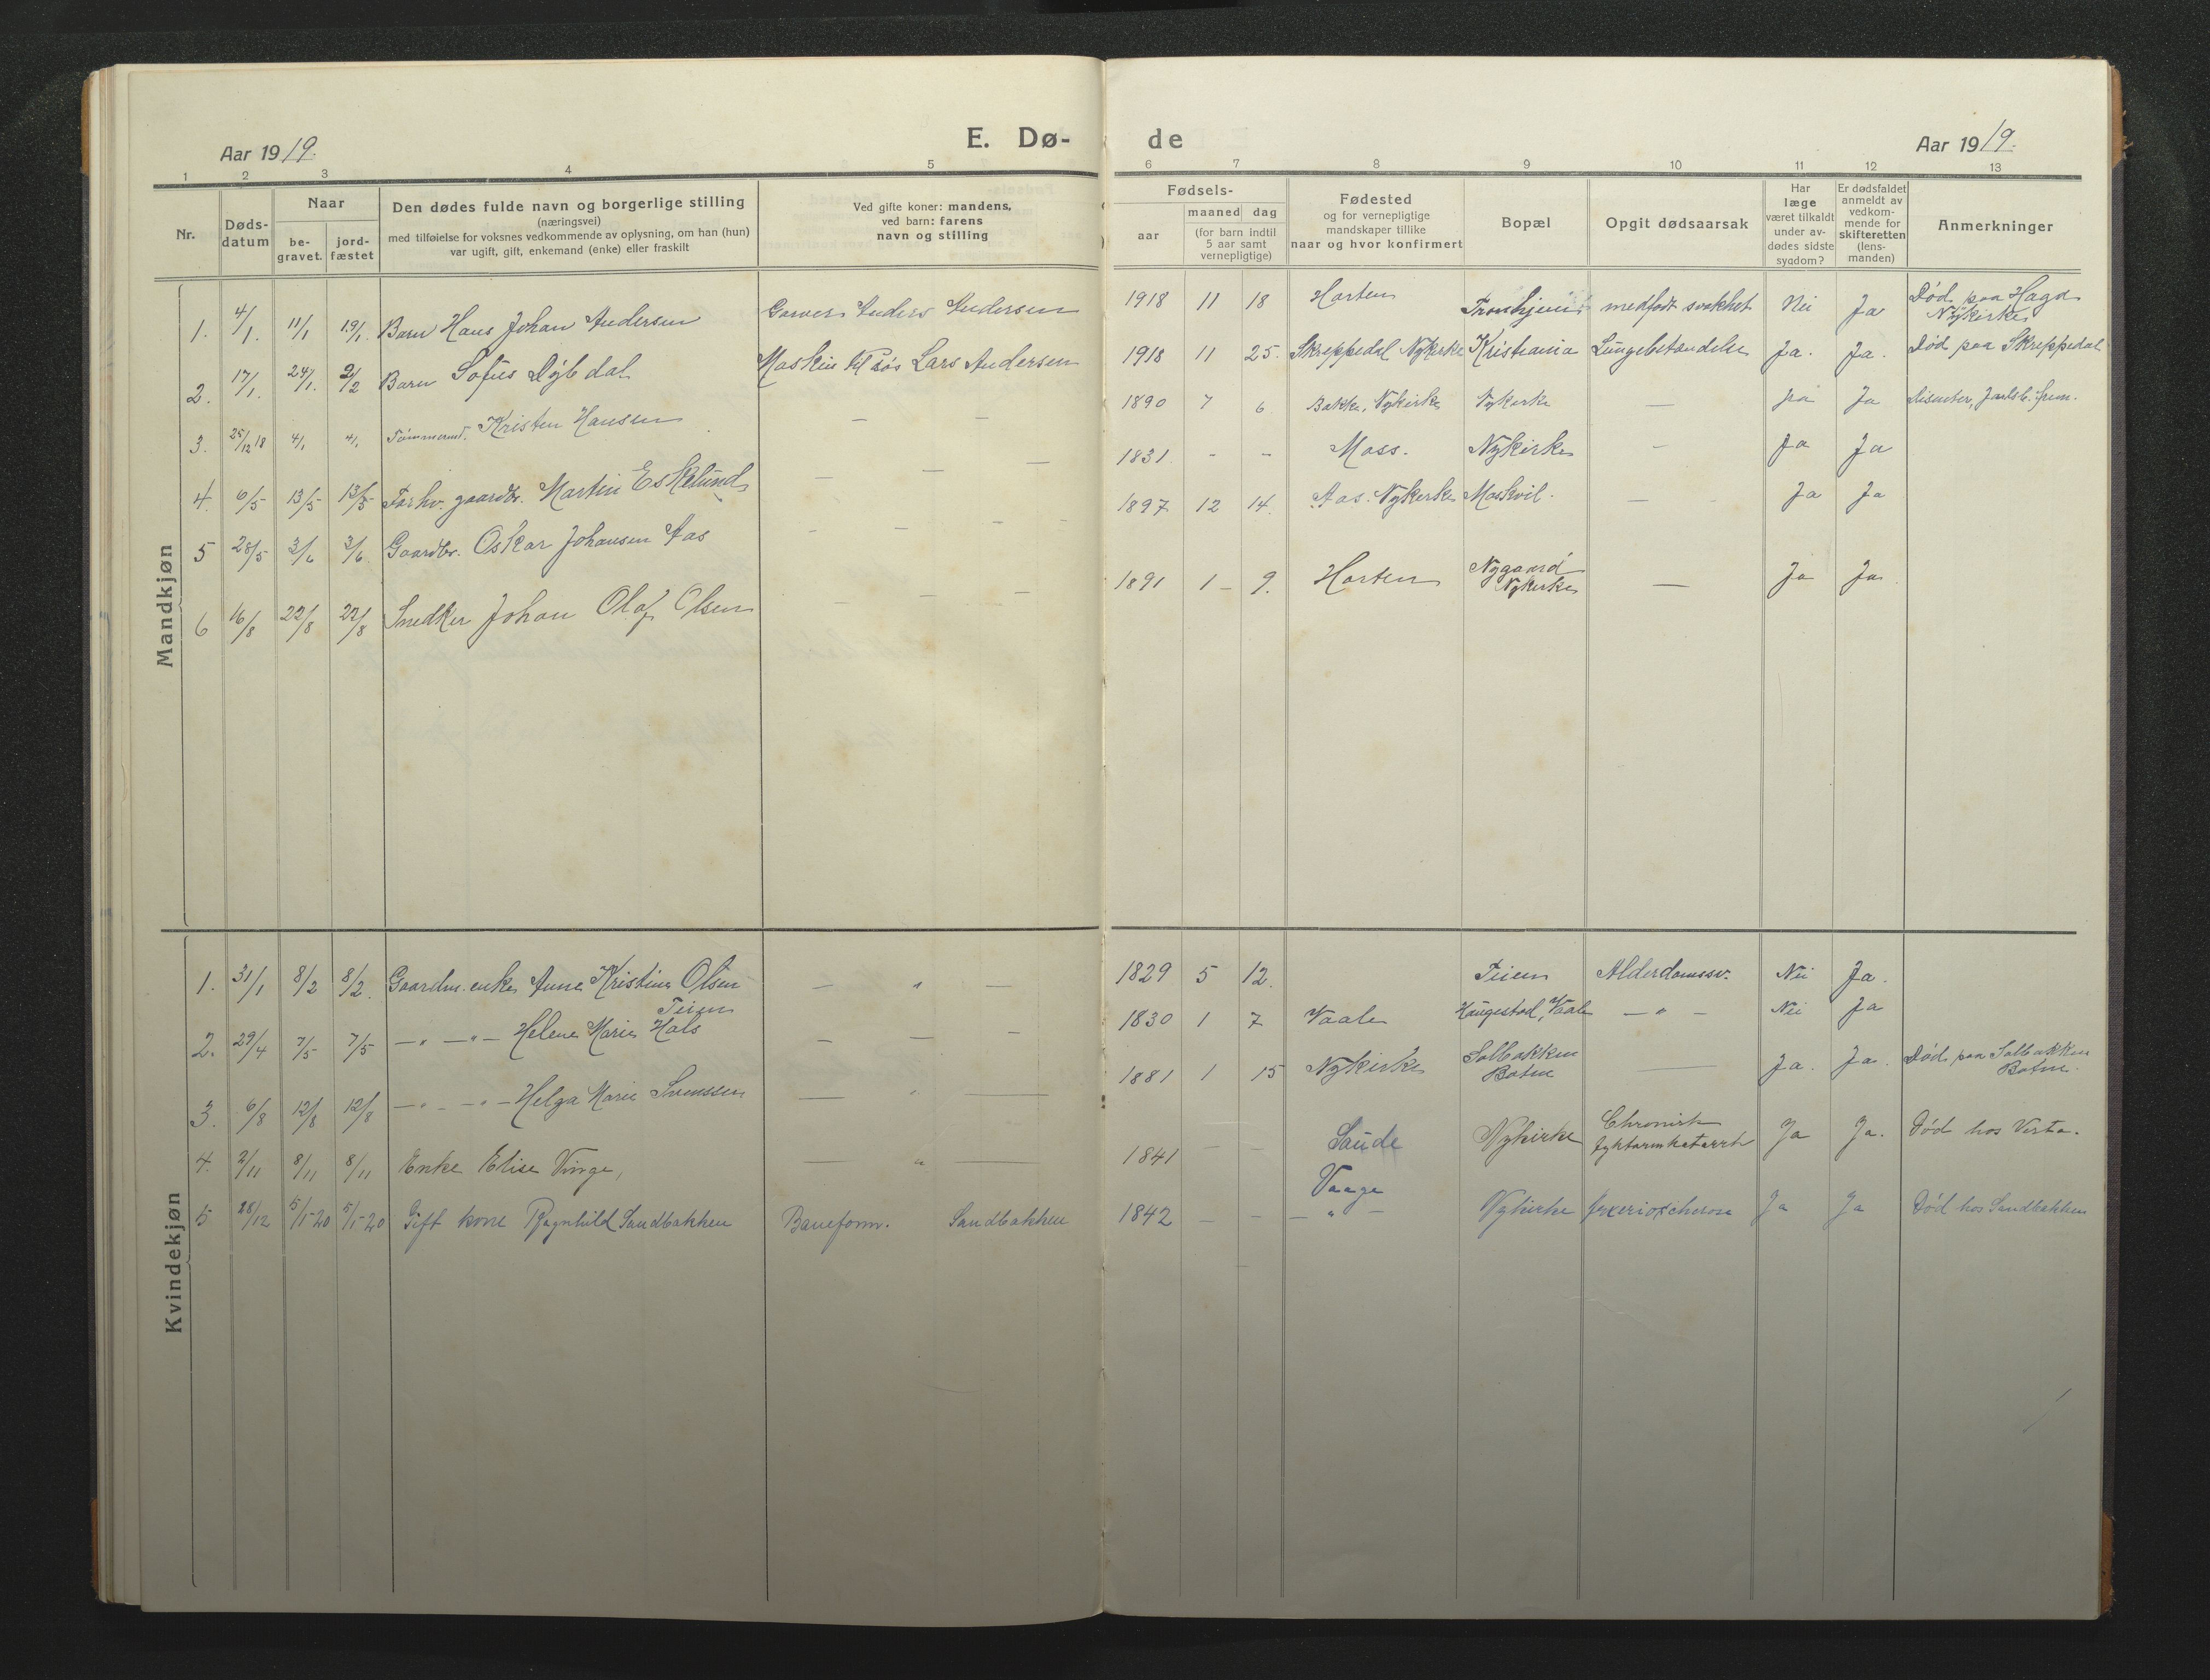 Aar 1919.
E. Dø-
de
Aar 1919.
1 2 3 4 5 6 7 8 9 10 11 12 13
Nr.
Døds-
datum
Naar
be-
gravet.
jord-
fæstet
Den dødes fulde navn og borgerlige stilling
(næringsvei)
med tilføielse for voksnes vedkommende av oplysning, om han (hun)
var ugift, gift, enkemand (enke) eller fraskilt
Ved gifte koner: mandens,
ved barn: farens
navn og stilling
Fødsels-
aar
maaned dag
(for barn indtil
5 aar samt
vernepligtige)
Fødested
og for vernepligtige
mandskaper tillike
naar og hvor konfirmert
Bopæl
Opgit dødsaarsak
Har
læge
været tilkaldt
under av-
dødes sidste
sygdom?
Er dødsfaldet
anmeldt av
vedkom-
mende for
skifteretten
(lens-
manden)
Anmerkninger
Mandkjøn
1. 4/1. 11/1 19/1. Barn Hans Johan Andersen Garver Anders Andersen 1918 11 18 Horten Tronhjem medfødt svakhet Nei Ja Død paa Hagan
Nykirke
2. 17/1. 24/1. 2/2 Barn Sofus Dybdal Maskin Lars Andersen 1918 11 25. Skreppedal Nykirke Kristiania Lungebetændelse Ja. Ja. Død paa Skreppedal
3. 25/12 18 4/1 4/1 Tømmermd. Kristen Hanssen — — 1890 7 6 Bakke, Nykirke Nykirke — Ja Ja Disenter,
4. 6/5 13/5 13/5 Forhv. gaardbr. Martin Eskelund — — — 1831 - - Moss. Nykirke — Ja Ja
5 28/5 3/6 3/6 Gaardbr. Oskar Johansen Aas — — — 1897 12 14. Aas. Nykirke Moskvil. — Ja Ja
6 16/8 22/8 22/8 Snedker Johan Olaf Olsen — — — 1891 1 - 9. Horten Nygaard
Nykirke — Ja Ja
Kvindekjøn
1. 31/1 8/2 8/2. Gaardm. enke Anne Kristine Olsen
Teien — " — 1829 5 12. Teien Alderdomssv. Nei Ja.
2. 29/4 7/5 7/5 —"— —"— Helene Marie Hals — — — 1830 1 7 Vaale Haugestad, Vaale — " — Nei Ja
3. 6/8 12/8 12/8 —"— —"— Helga Marie Svenssen — " — 1881 1 15 Nykirke Solbakken
Botne — Ja. Ja. Død paa Solbakken
Botne.
4. 2/11 8/11 8/11 Enke Elise Vinge, — " — 1841 — — Saude Nykirke Chronisk
tyktarmkatarrh Ja Ja. Død hos Vista.
Vaage
5 28/12 5/1-20 5/1-20 Gift kone Ragnhild Sandbakken Baneform. Sandbakken 1842 — — — " — Nykirke Ja Ja Død hos Sandbakken